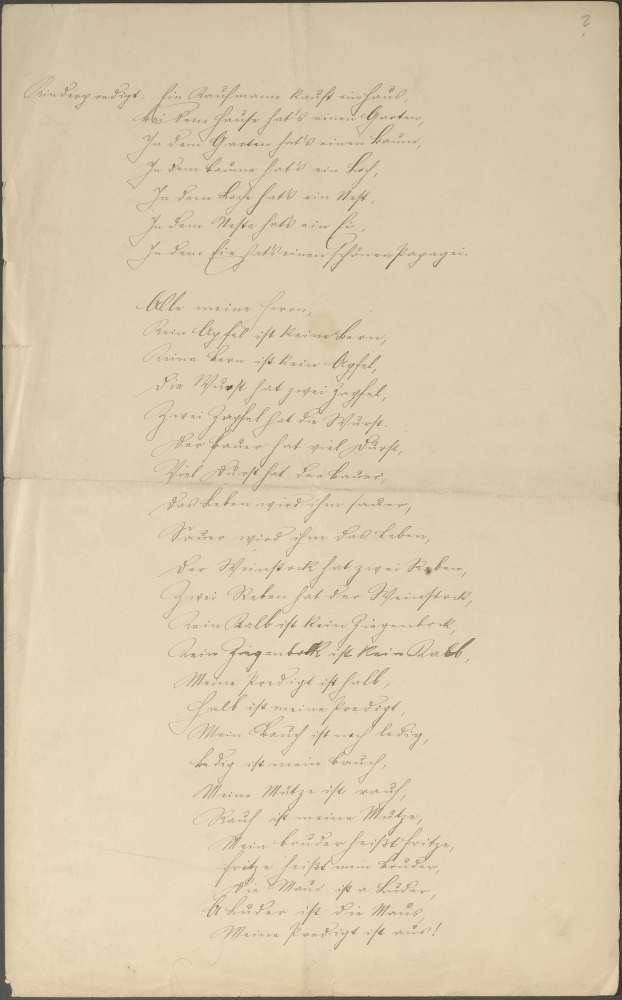 ?
Kinderpredigt: Ein Kaufmann kauft ein Haus,
Bei dem Hause hat's einen Garten,
In dem Garten hat's einen Baum,
In dem Baume hat's ein Loch,
In dem Loche hat's ein Nest,
In dem Neste hat's ein Ei,
In dem Eie hat's einen schönen Papagei.
Alle meine Herrn,
Kein Apfel ist keine Bern,
Keine Bern ist kein Apfel,
Die Wurst hat zwei Zapfel,
Zwei Zapfel hat die Wurst.
Der Bauer hat viel Durst,
Viel Durst hat der Bauer,
Das Leben wird ihm sauer,
Sauer wird ihm das Leben,
Der Weinstock hat zwei Reben,
Zwei Reben hat der Weinstock,
Kein Kalb ist kein Ziegenbock,
Kein Ziegenbock ist kein Kalb,
Meine Predigt ist halb,
Halb ist meine Predigt,
Mein Bauch ist noch ledig,
Ledig ist mein Bauch,
Meine Mütze ist rauh,
Rauh ist meine Mütze,
Mein Bruder heißt Fritze,
Fritze heißt mein Bruder,
Die Maus ist a Luder,
A Luder ist die Maus,
Meine Predigt ist aus!